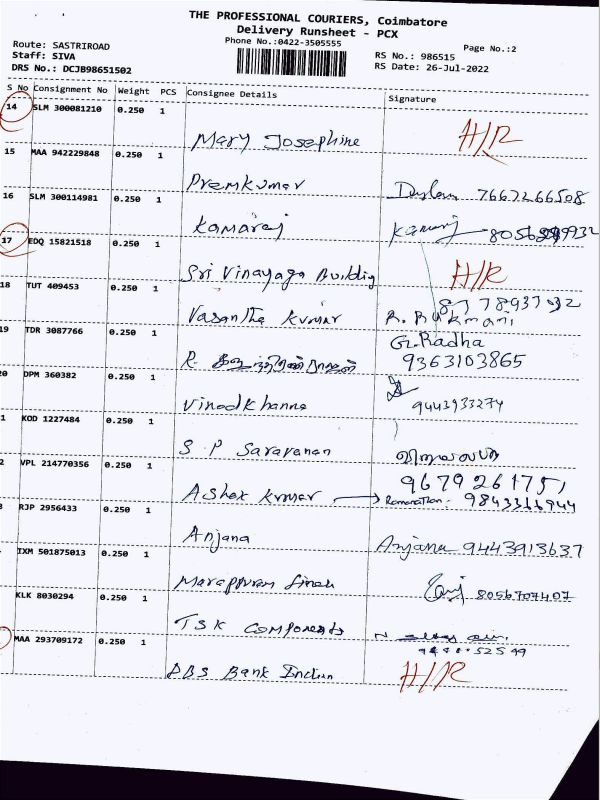 THE PROFESSIONAL COURIERS, Coimbatore
Delivery Runsheet - PCX
Phone No.:0422-3505555
Page No.:2
Route: SASTRIROAD
Staff: SIVA
DRS No.: DCJB98651502
RS No.: 986515
RS Date: 26-Jul-2022
S No Consignment No Weight PCS Consignee Details Signature
14 SLM 300081210 0.250 1
Mary Josephine H/R
15 MAA 942229848 0.250 1
Premkumar 7667266508
16 SLM 300114981 0.250 1
Kamaraj Kamaraj
17 EDQ 15821518 0.250 1
Sri Vinayaga Building H/R
18 TUT 409453 0.250 1
Vasantha Kumar R. Rukmani
19 TDR 3087766 0.250 1
G. Radha
R. 9363103865
20 DPM 360382 0.250 1
Vinodkhanna 9443933274
1 KOD 1227484 0.250 1
S P Saravanan
2 VPL 214770356 0.250 1
9679261751
Ashok Kumar 9843366944
RJP 2956433 0.250 1
Anjana Anjana 9443913637
IXM 501875013 0.250 1
8056707407
KLK 8030294 0.250 1
TSK Components
MAA 293709172 0.250 1
DBS Bank India H/R